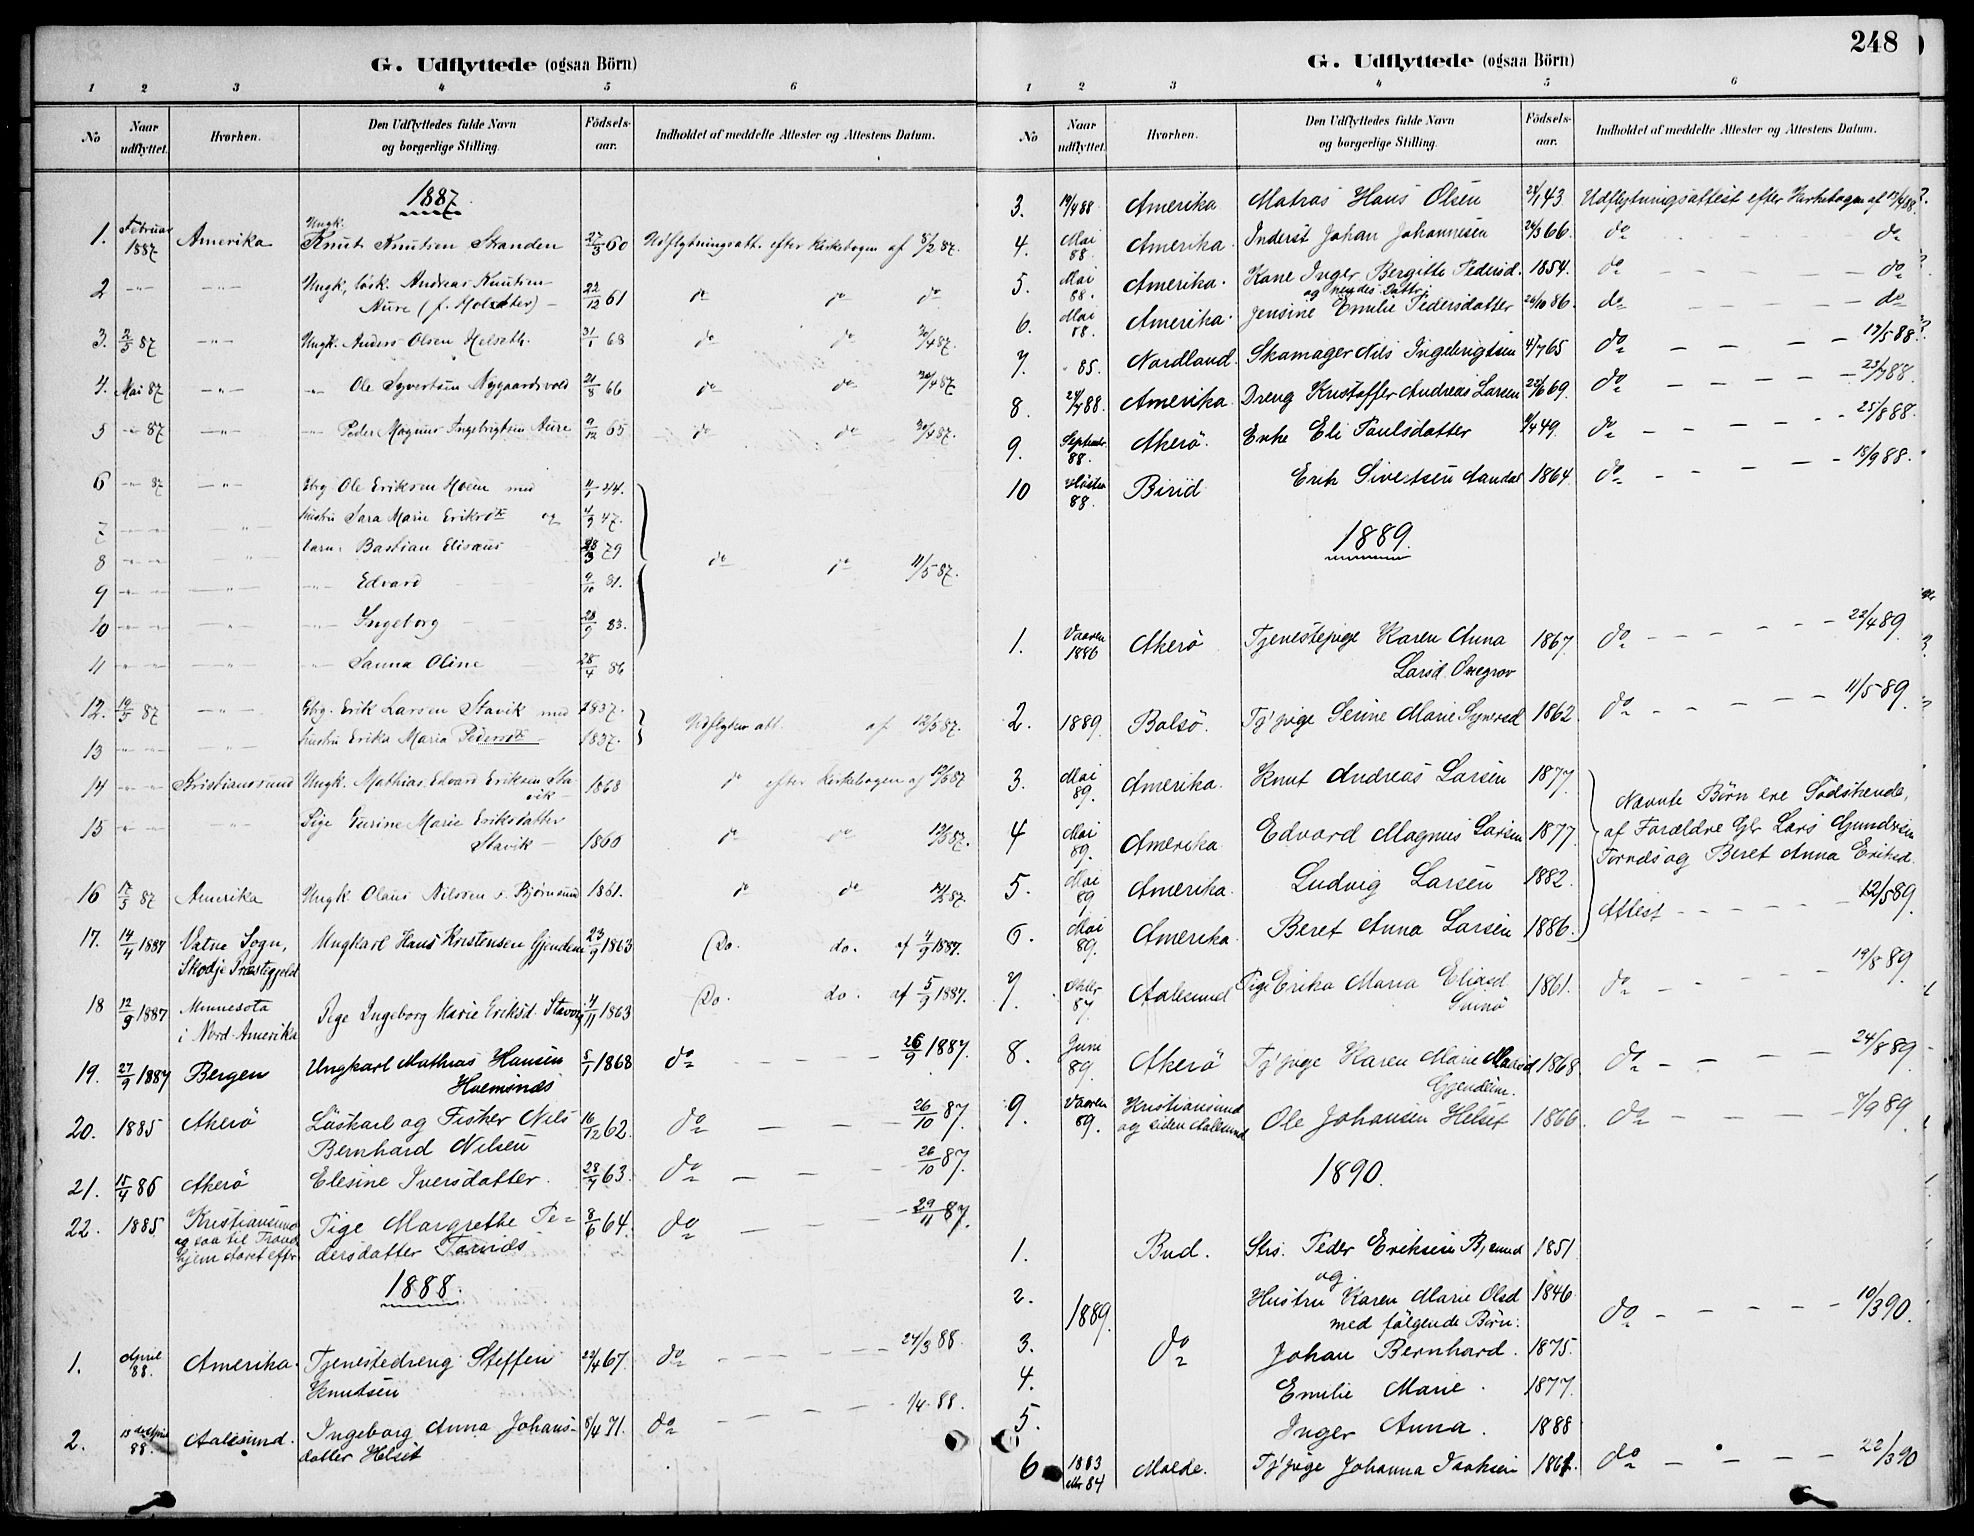 248
G. Udflyttede (ogsaa Börn)
1 2 3 4 5 6
No Naar udflyttet. Hvorhen. Den Udflyttedes fulde Navn og borgerlige Stilling. Födsels-aar. Indholdet af meddelte Attester og Attestens Datum.
1887.
1. Februar 1887 Amerika Ungk. Knut Knutsen Stranden 27/3 60 Udflytningsatt. efter Kirkebogen af 8/2 87.
2 -"- -"- Ungk, lösk. Andreas Knutsen
Aure 22/12 61 do do do
3. 2/5 87 -"- Ungk. Anders Olsen Helseth. 31/1 68 do do 30/4 87.
4. Mai 87 -"- -"- Ole Syvertsen Nygaardsvold 21/8 66 do do 30/4 87
5 -"- 87 -"- -"- Peder Magnus Ingebrigtsen Aure 9/12 65 do do 30/4 87.
6 -"- 87 -"- Gbrg. Ole Eriksen Hoem med 11/1 24.
7 -"- -"- hustru Sara Marie Eriksdtr og 4/9 47.
8 -"- -"- barn: Bastian Elisæus 28/3 79 do do 11/5 87.
9 -"- -"- -"- Edvard 9/10 81.
10 -"- -"- -"- Ingeborg 28/9 83.
11 -"- -"- -"- Sanna Oline 28/4 86
12. 19/5 87 -"- Gbrg. Erik Larsen Stavik med 1837. Udflytn. att. af 12/5 87.
13 -"- -"- hustru Erika Maria Pedersdtr 1837.
14 -"- Kristianssund Ungk. Mathias Edvard Eriksen Sta-
vik 1868 do efter Kirkebogen af 12/5 87
15 -"- -"- Pige Gurine Marie Eriksdatter
Stavik - 1860 do do 12/5 87.
16 17/5 87 Amerika Ungk. Olaus Nilssen v. Bjørnsund 1861. do do
17. 14/4 1887 Vatne Sogn, Ungkarl Hans Kristensen Gjendem 23/9 1863 Do. do. af 4/9 1887.
Skodje Præstegjeld
18 12/9 1887 Minnesota Pige Ingeborg Marie Eriksd. Stavvig 4/11 1863 Do. do. af 5/9 1887.
i Nord-Amerika
19. 27/9 1887 Bergen Ungkarl Mathias Hansen 5/1 1868 do 26/9 1887.
Huemsnæs
20. 1885 Akerö Löskarl og Fisker Nils 16/12 62. do 26/10 87.
Bernhard Nilsen
21. 15/4 86 Akerö Elesine Iversdatter. 28/4 63. do 26/10 87.
22. 1885 Kristianssund Pige Margrethe Pe= 8/6 64. do 29/11 87.
og saa til Trond-
hjem Aaret efter dersdatter Tornes
1888.
1. April 88. Amerika. Tjenestedreng Steffen 22/4 67. do 24/3 88.
Knutsen
2. 88. Aalesund. Ingeborg Anna Johans- 8/4 71. do 1/4 88.
datter Helset
G. Udflyttede (ogsaa Börn)
1 2 3 4 5 6
No Naar udflyttet. Hvorhen. Den Udflyttedes fulde Navn og borgerlige Stilling. Födsels-aar. Indholdet af meddelte Attester og Attestens Datum.
3. 19/4 88 Amerika Matros Hans Olsen 24/1 43 Udflytningsattest efter Kirkebogen af 19/4 88.
4. Mai 88. Amerika. Inderst Johan Johannesen 24/3 66. do do
5. Mai 88. Amerika. Kone Inger Bergitte Pedersd. 1854. do do
og hendes Datter:
6. Mai 88. Amerika. Jensine Emilie Pedersdatter 26/10 86. do do
7. 85. Nordland. Skomager Nils Ingebrigtsen 4/7 65 do 17/5 88
8 24/7 88. Amerika. Dreng Kristoffer Andreas Larsen 22/6 69. do 23/7 88.
9. Septembr. 88. Akerö. Enke Eli Paulsdatter 1/4 49. do 25/8 88.
10 Høsten 88. Birid Erik Sivertsen Aandal 1864 do 18/9 88.
1889.
1. Vaaren 1886 Akerö Tjenestepige Karen Anna 1867. do 22/4 89.
Larsd. Oxegrov
2. 1889. Bolsö. Tj'pige Serine Marie Syversd 1862 do 11/5 89.
3. Mai 89. Amerika. Knut Andreas Larsen 1877.
Nævnte Børn ere Södskende,
4 Mai 89. Amerika Edvard Magnus Larsen 1877. af Forældre Gbr. Lars Gundersen
Tornæs og Beret Anna Eriksd.
5. Mai 89 Amerika. Ludvig Larsen 1882.
Attest 12/5 89.
6. Mai 89. Amerika. Beret Anna Larsen 1886.
7. 87. Aalesund Pige Erika Maria Eliasd. 1861. do 19/8 89.
8. Juni 89. Akerö Tj'pige Karen Marie Larsd 1868. do 24/8 89.
Gjendem.
9. Vaaren 89. Kristiansund Ole Johansen Helset 1866. do 7/9 89.
og siden Aalesund
1890.
1. Bud. Strs. Peder Eriksen Bj.sund 1851
og
2. 1889. Hustru Karen Marie Olsd 1846 do 10/3 90.
med følgende Børn:
3. do Johan Bernhard. 1875.
4. Emilie Marie. 1877.
5. Inger Anna. 1888
6 1883 eller 84 Molde. Tj'pige Johanna Isaksen do 22/3 90